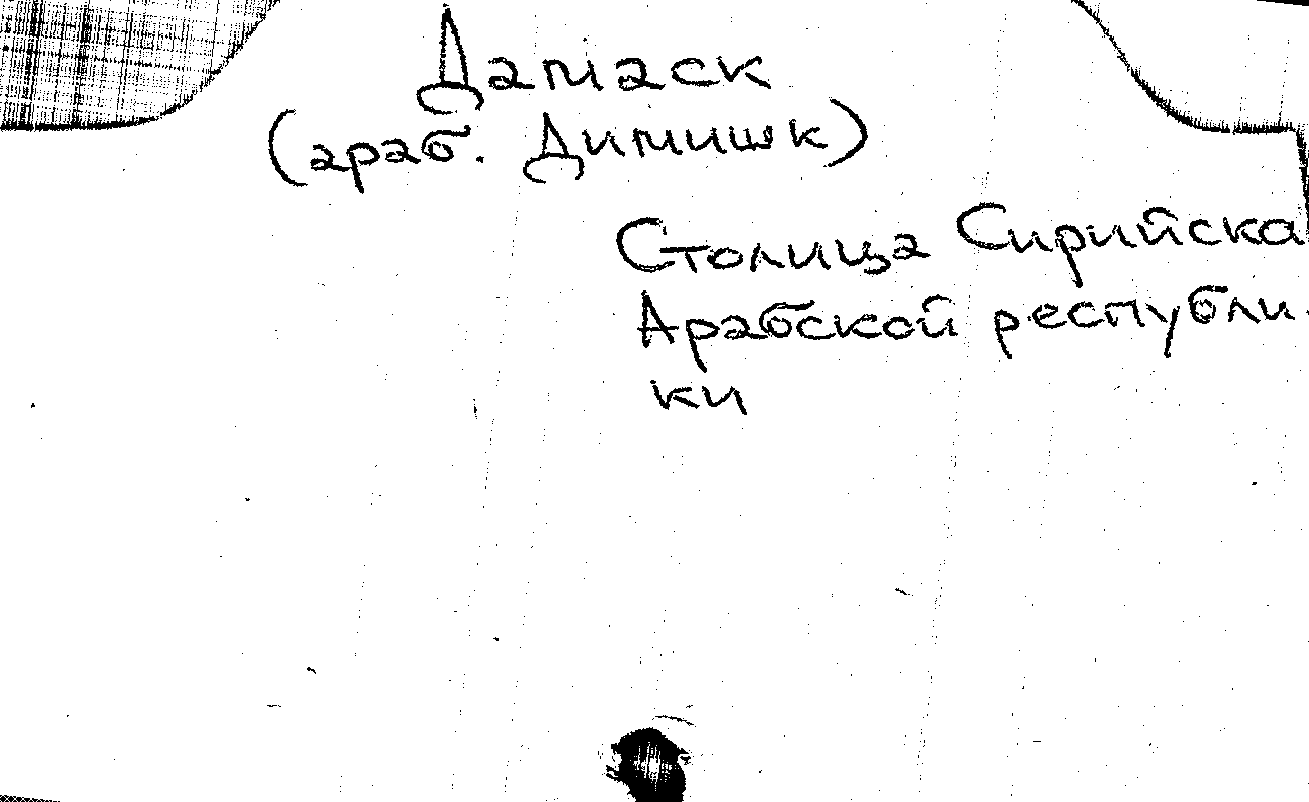 Дамаск
(араб. Димишк)
Столица Сирийска
Арабской республи
ки